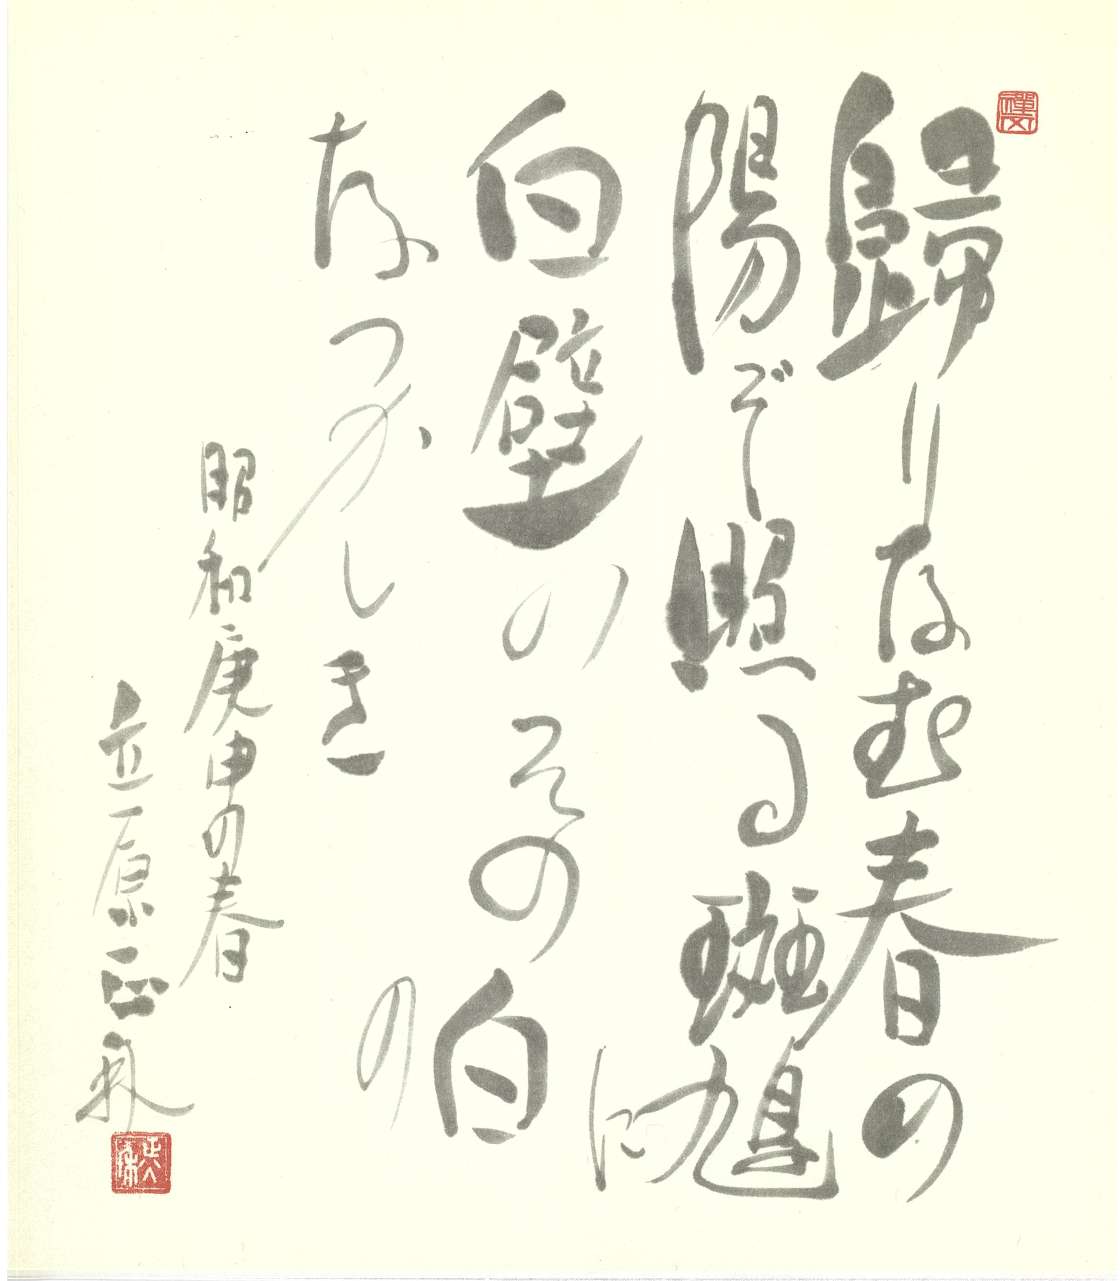 歸りなむ春の
陽ぞ照る斑鳩に
白壁のその白の
なつかしき
昭和庚申の春
立原正秋